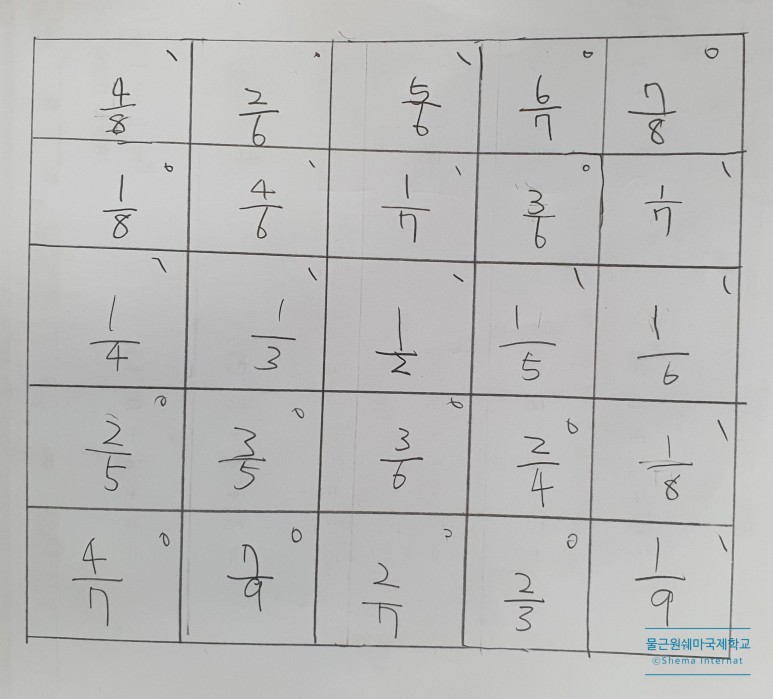 4/8 2/6 5/6 6/7 7/8
1/8 4/6 1/7 3/6 1/7
1/4 1/3 1/2 1/5 1/6
2/5 3/5 3/6 2/4 1/8
4/7 7/9 2/7 2/3 1/9
물근원쉐마국제학교
©Shema Internat